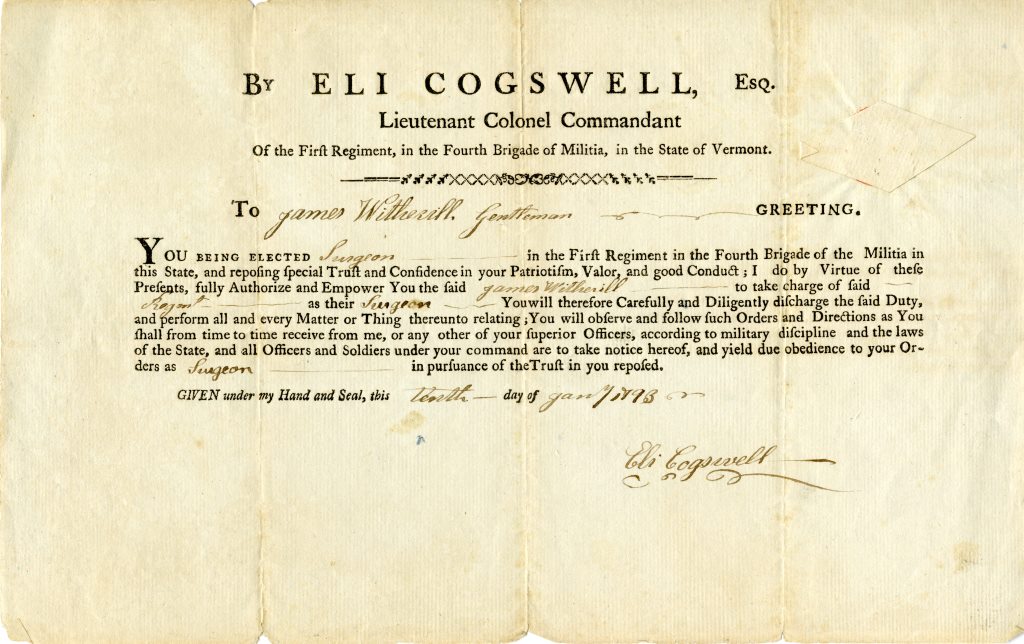 By ELI COGSWELL, Esq.
Lieutenant Colonel Commandant
Of the Firſt Regiment, in the Fourth Brigade of Militia, in the State of Vermont.
To James Witherill Gentleman GREETING.
YOU BEING ELECTED Surgeon in the Firſt Regiment in the Fourth Brigade of the Militia in
this State, and repoſing ſpecial Truſt and Confidence in your Patriotiſm, Valor, and good Conduct; I do by Virtue of theſe
Preſents, fully Authorize and Empower You the ſaid James Witherill to take charge of ſaid
Regmt as their Surgeon You will therefore Carefully and Diligently diſcharge the ſaid Duty,
and perform all and every Matter or Thing thereunto relating; You will obſerve and follow ſuch Orders and Directions as You
ſhall from time to time receive from me, or any other of your ſuperior Officers, according to military diſcipline and the laws
of the State, and all Officers and Soldiers under your command are to take notice hereof, and yield due obedience to your Or-
ders as Surgeon in purſuance of the Truſt in you repoſed.
GIVEN under my Hand and Seal, this tenth day of Jany 1793
Eli Cogswell